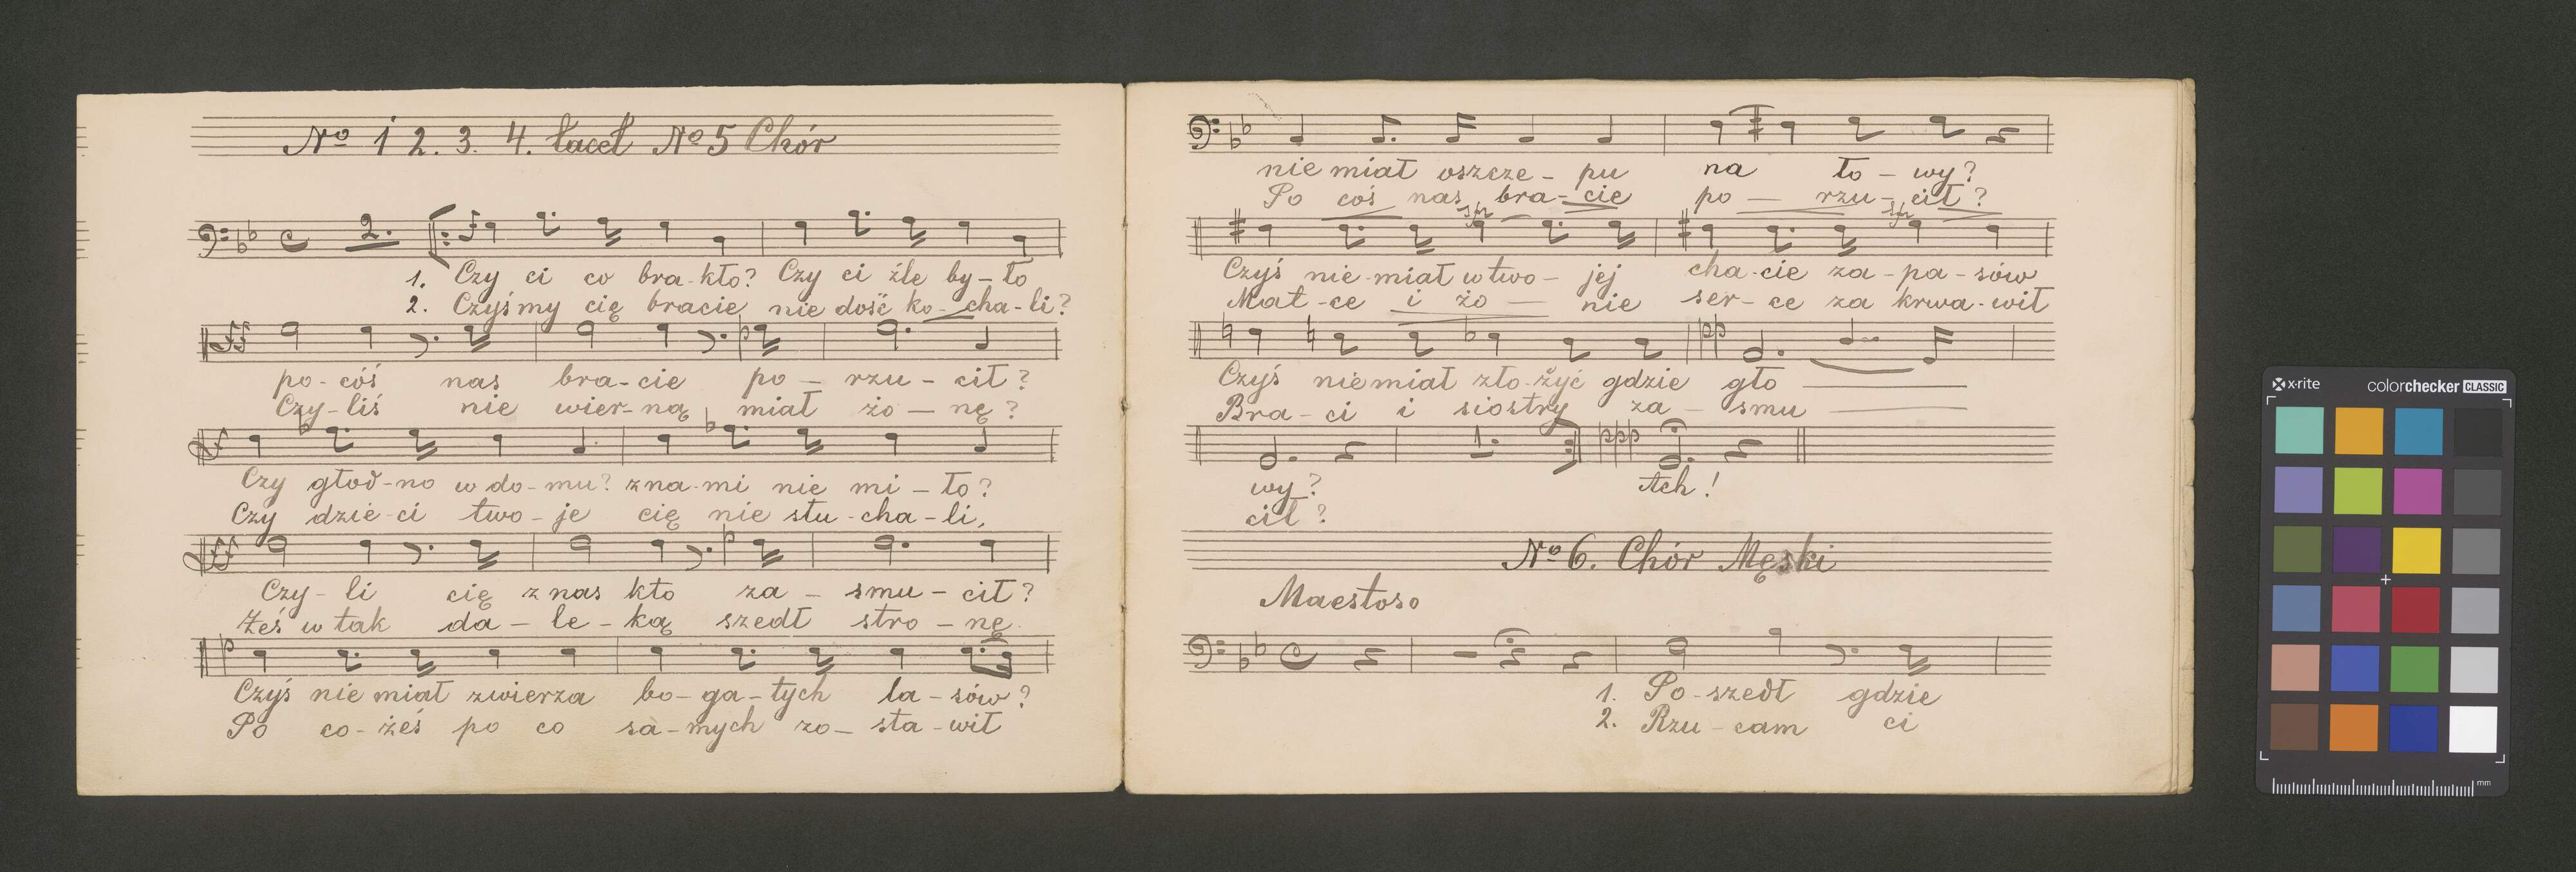 No 1 2. 3. 4. tacet No 5 Chór
2.
1. Czy ci co bra-kło? Czy ci źle by-ło
2. Czyśmy cię bracie nie dość ko-cha-li?
ff
po-cóś nas bra-cie po-rzu-cił?
Czy-liś nie wier-ną miał żo-nę?
f
Czy głod-no w do-mu? z na-mi nie mi-ło?
Czy dzie-ci two-je cię nie słu-cha-li,
ff
Czy-li cię z nas kto za-smu-cił?
Żeś w tak da-le-ką szedł stro-nę
p
Czyś nie miał zwierza bo-ga-tych la-sów?
Po co-żeś po co sa-mych zo-sta-wił
nie miał oszcze-pu na ło-wy?
Po coś nas bra-cie po-rzu-cił?
sfz sfz
Czyś nie-miał w two-jej cha-cie za-pa-sów
Mat-ce i żo-nie ser-ce za krwa-wił
pp
Czyś nie miał zło-żyć gdzie gło
Bra-ci i siostry za-smu
1. ppp
wy? Ach!
cił?
No 6. Chór Męski
Maestoso
1. Po-szedł gdzie
2. Rzu-cam ci
x-rite colorchecker CLASSIC
mm